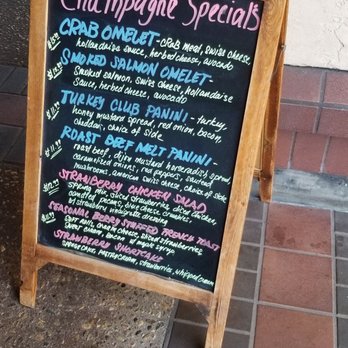 Champagne Specials
CRAB OMELET- crab meat, swiss cheese
hollandaise sauce, herbed cheese, avocado
SMOKED SALMON OMELET-
smoked salmon, swiss cheese, hollandaise
sauce, herbed cheese, avocado
TURKEY CLUB PANINI - turkey,
honey mustard spread, red onion, bacon,
cheddar, choice of side
ROAST BEEF MELT PANINI-
roast beef, dijon mustard horseradish spread,
caramelized onions, red peppers, sauteed
mushrooms, american swiss cheese, choice of side
STRAWBERRY CHICKEN SALAD
spring mix, sliced strawberries, diced chicken,
candied pecans, blue cheese crumbles,
w/ strawberry vinaigrette dressing
SEASONAL BERRY STUFFED FRENCH TOAST
cream cheese, sliced strawberries,
bacon, w/ maple syrup
STRAWBERRY SHORTCAKE
strawberries, whipped cream